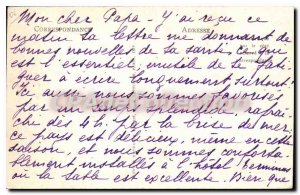 Mon cher Papa - J'ai reçu ce
CORRESPONDANCE ADRESSE
matin ta lettre me donnant de
bonnes nouvelles de ta santé. C'est que
est l'essentiel, inutile de te fati
guer à écrire longuement surtout.
Ici aussi nous sommes favorisés
par un temps splendide, rafraî
chi dès 4 h. par la brise des mer,
ce pays est délicieux, même en cette
saison, et nous sommes conforta
blement installés à l'hôtel Terminus
où la table est excellente. Bien que